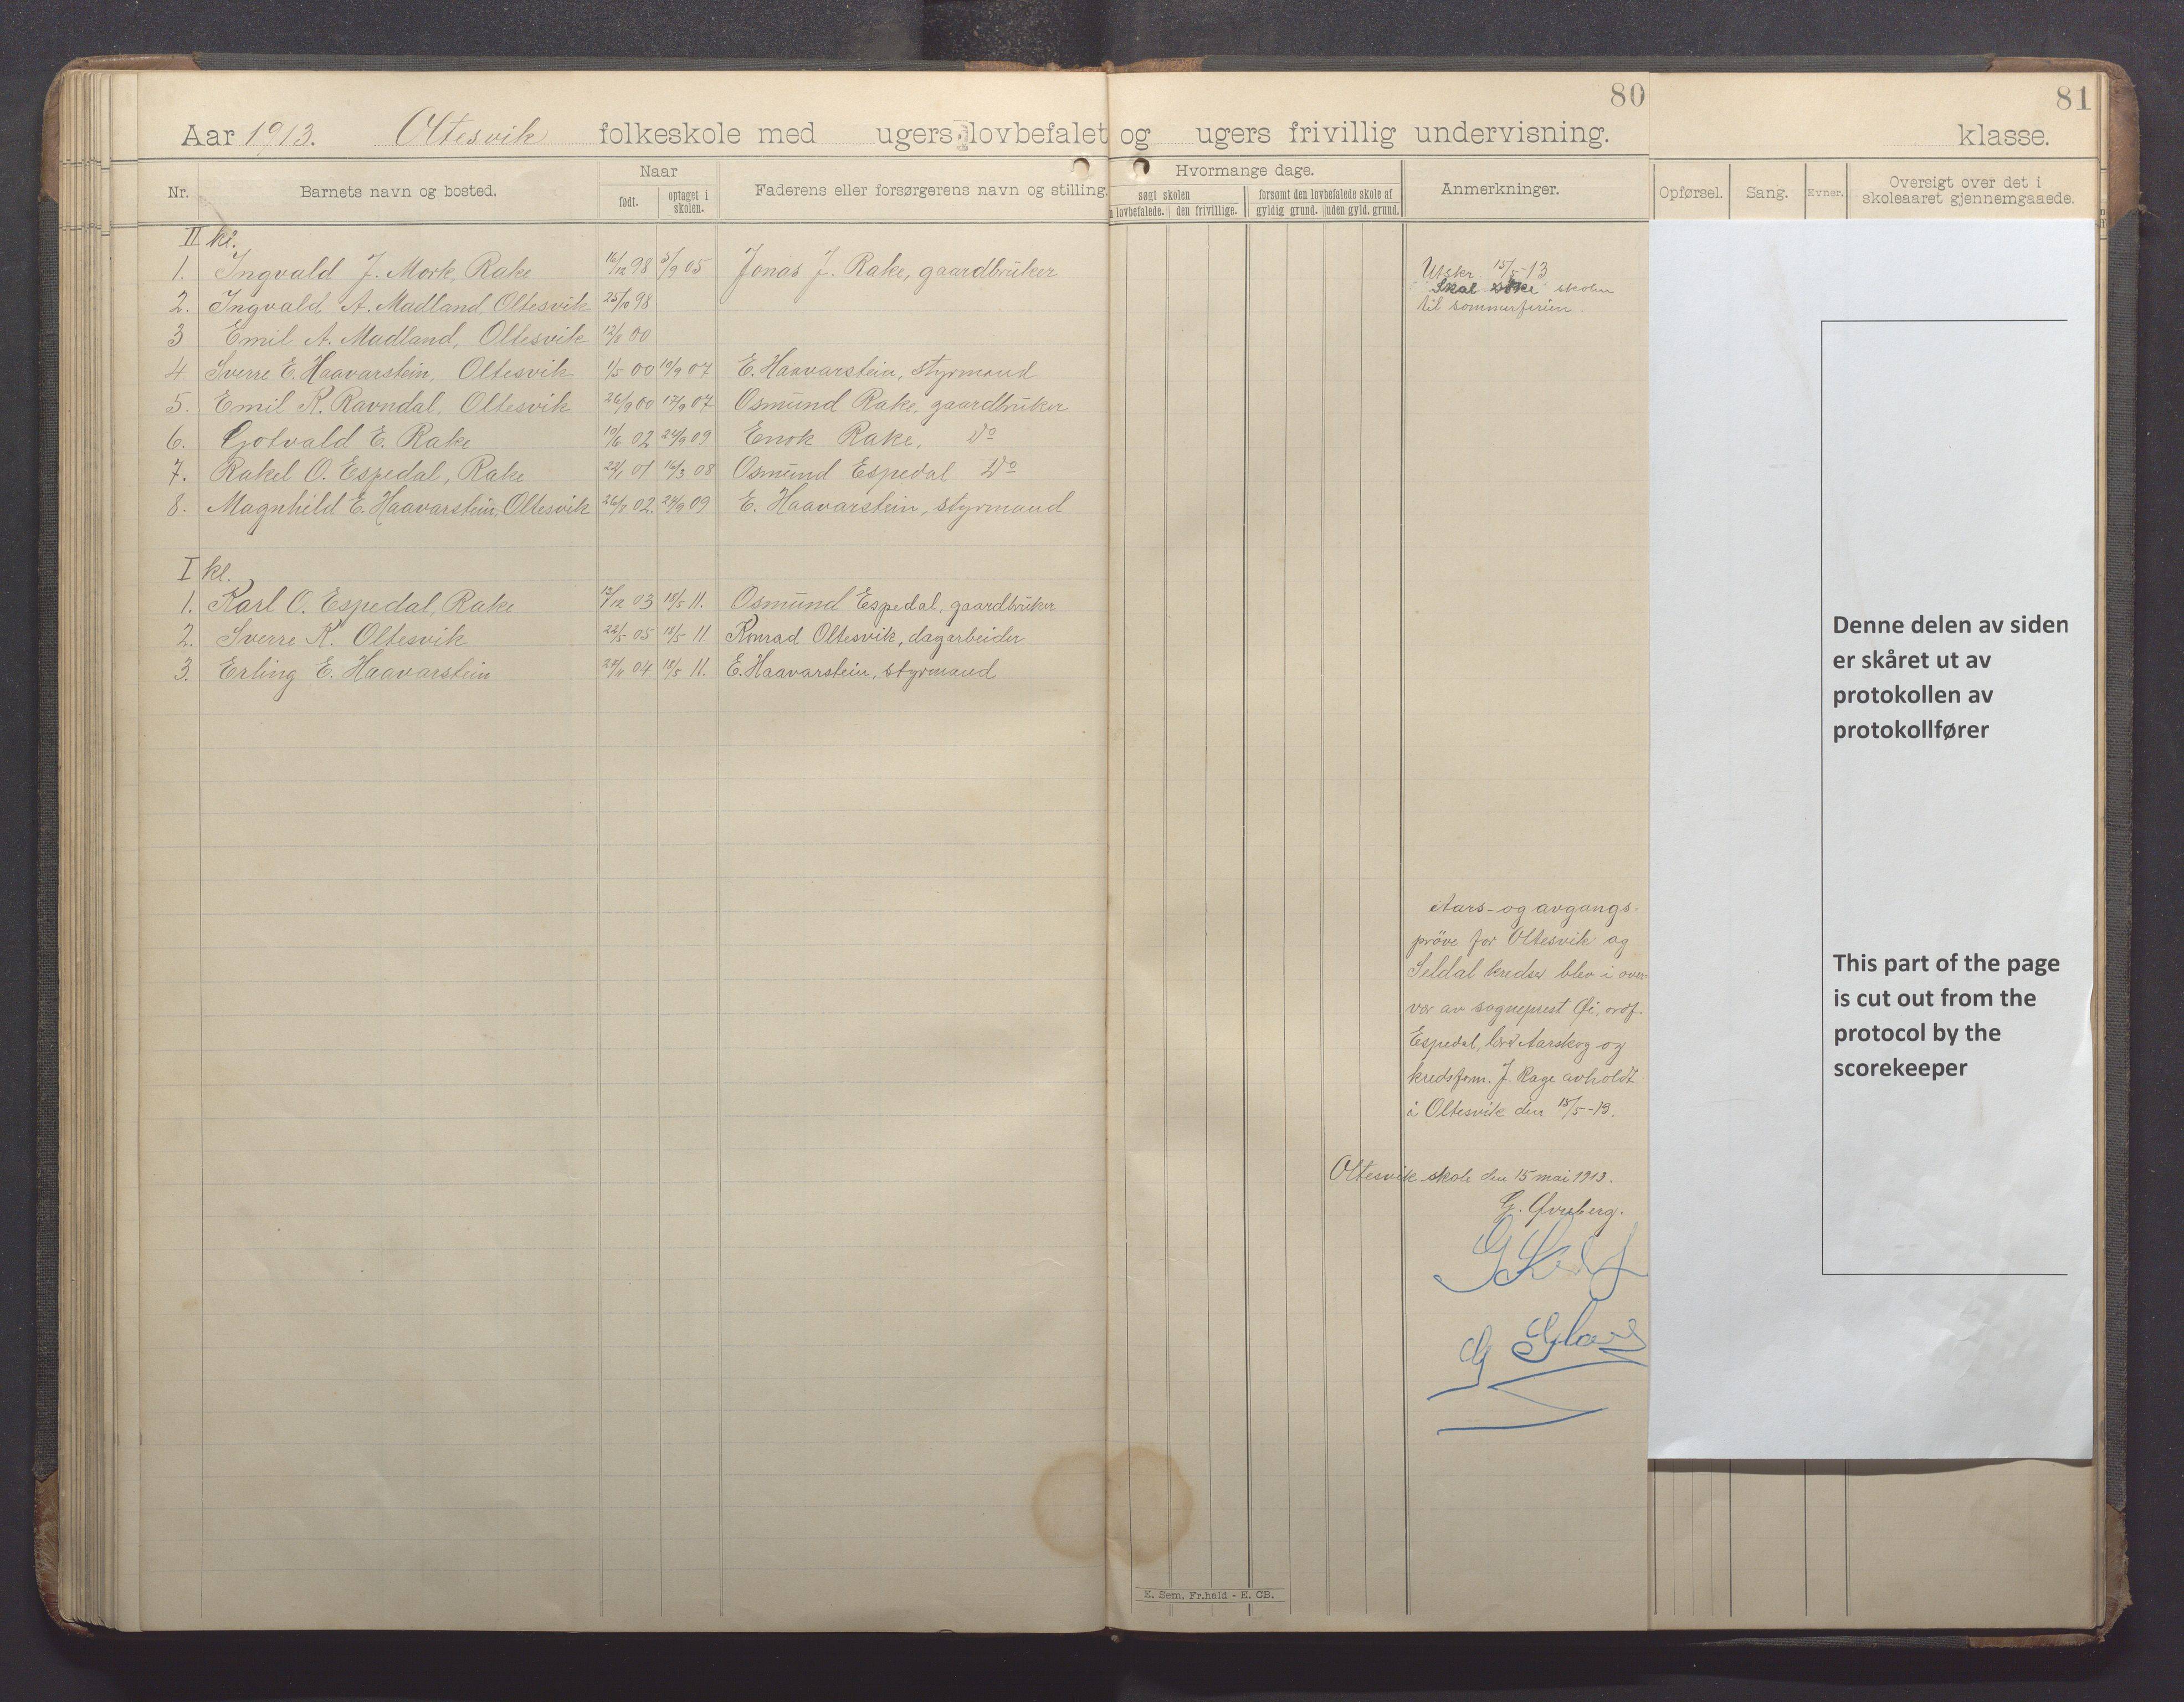 80
81
Aar 1913. Oltesvik folkeskole med ugers lovbefalet og ugers frivillig undervisning.
klasse.
Nr. Barnets navn og bosted. Naar født. optaget i skolen. Faderens eller forsørgerens navn og stilling. Hvormange dage. søgt skolen n lovbefalede. den frivillige. forsømt den lovbefalede skole af gyldig grund. uden gyld. grund. Anmerkninger.
Opførsel. Sang. Evner. Oversigt over det i skoleaaret gjennemgaaede.
II kl.
1. Ingvald J. Mork, Rake 16/12 98 5/9 05 Jonas J. Rake, gaardbruker Utskr. 15/5-13
2. Ingvald A. Madland, Oltesvik 25/10 98 Skal søke skolen
til sommerferien.
3 Emil A. Madland, Oltesvik 12/8 00
4. Sverre E. Haavarstein, Oltesvik 1/5 00 10/9 07 E. Haavarstein, styrmand
5. Emil K. Ravndal, Oltesvik 26/9 00 17/9 07 Osmund Rake, gaardbruker
6. Gotvald E. Rake 10/6 02 24/9 09 Enok Rake, Do
7. Rakel O. Espedal, Rake 22/1 01 16/3 08 Osmund Espedal Do
8. Magnhild E. Haavarstein, Oltesvik 26/8 02. 24/9 09 E. Haavarstein, styrmand
I kl.
1. Karl O. Espedal, Rake 03 18/5 11. Osmund Espedal, gaardbruker
2. Sverre K. Oltesvik 22/5 05 18/5 11 Konrad Oltesvik, dagarbeider
3. Erling E. Haavarstein 04 18/5 11. E. Haavarstein, styrmand
Aars- og avgangs-
pröve for Oltesvik og
Seldal kredse blev i over-
vær av sogneprest Øi, ordf.
Espedal, Aarskog og
kredsform. J. Rage avholdt
i Oltesvik den 15/5-13.
Oltesvik skole den 15 mai 1913.
G. Øvreberg.
E. Sem, Fr.hald - E. CB.
Denne delen av siden
er skåret ut av
protokollen av
protokollfører
This part of the page
is cut out from the
protocol by the
scorekeeper